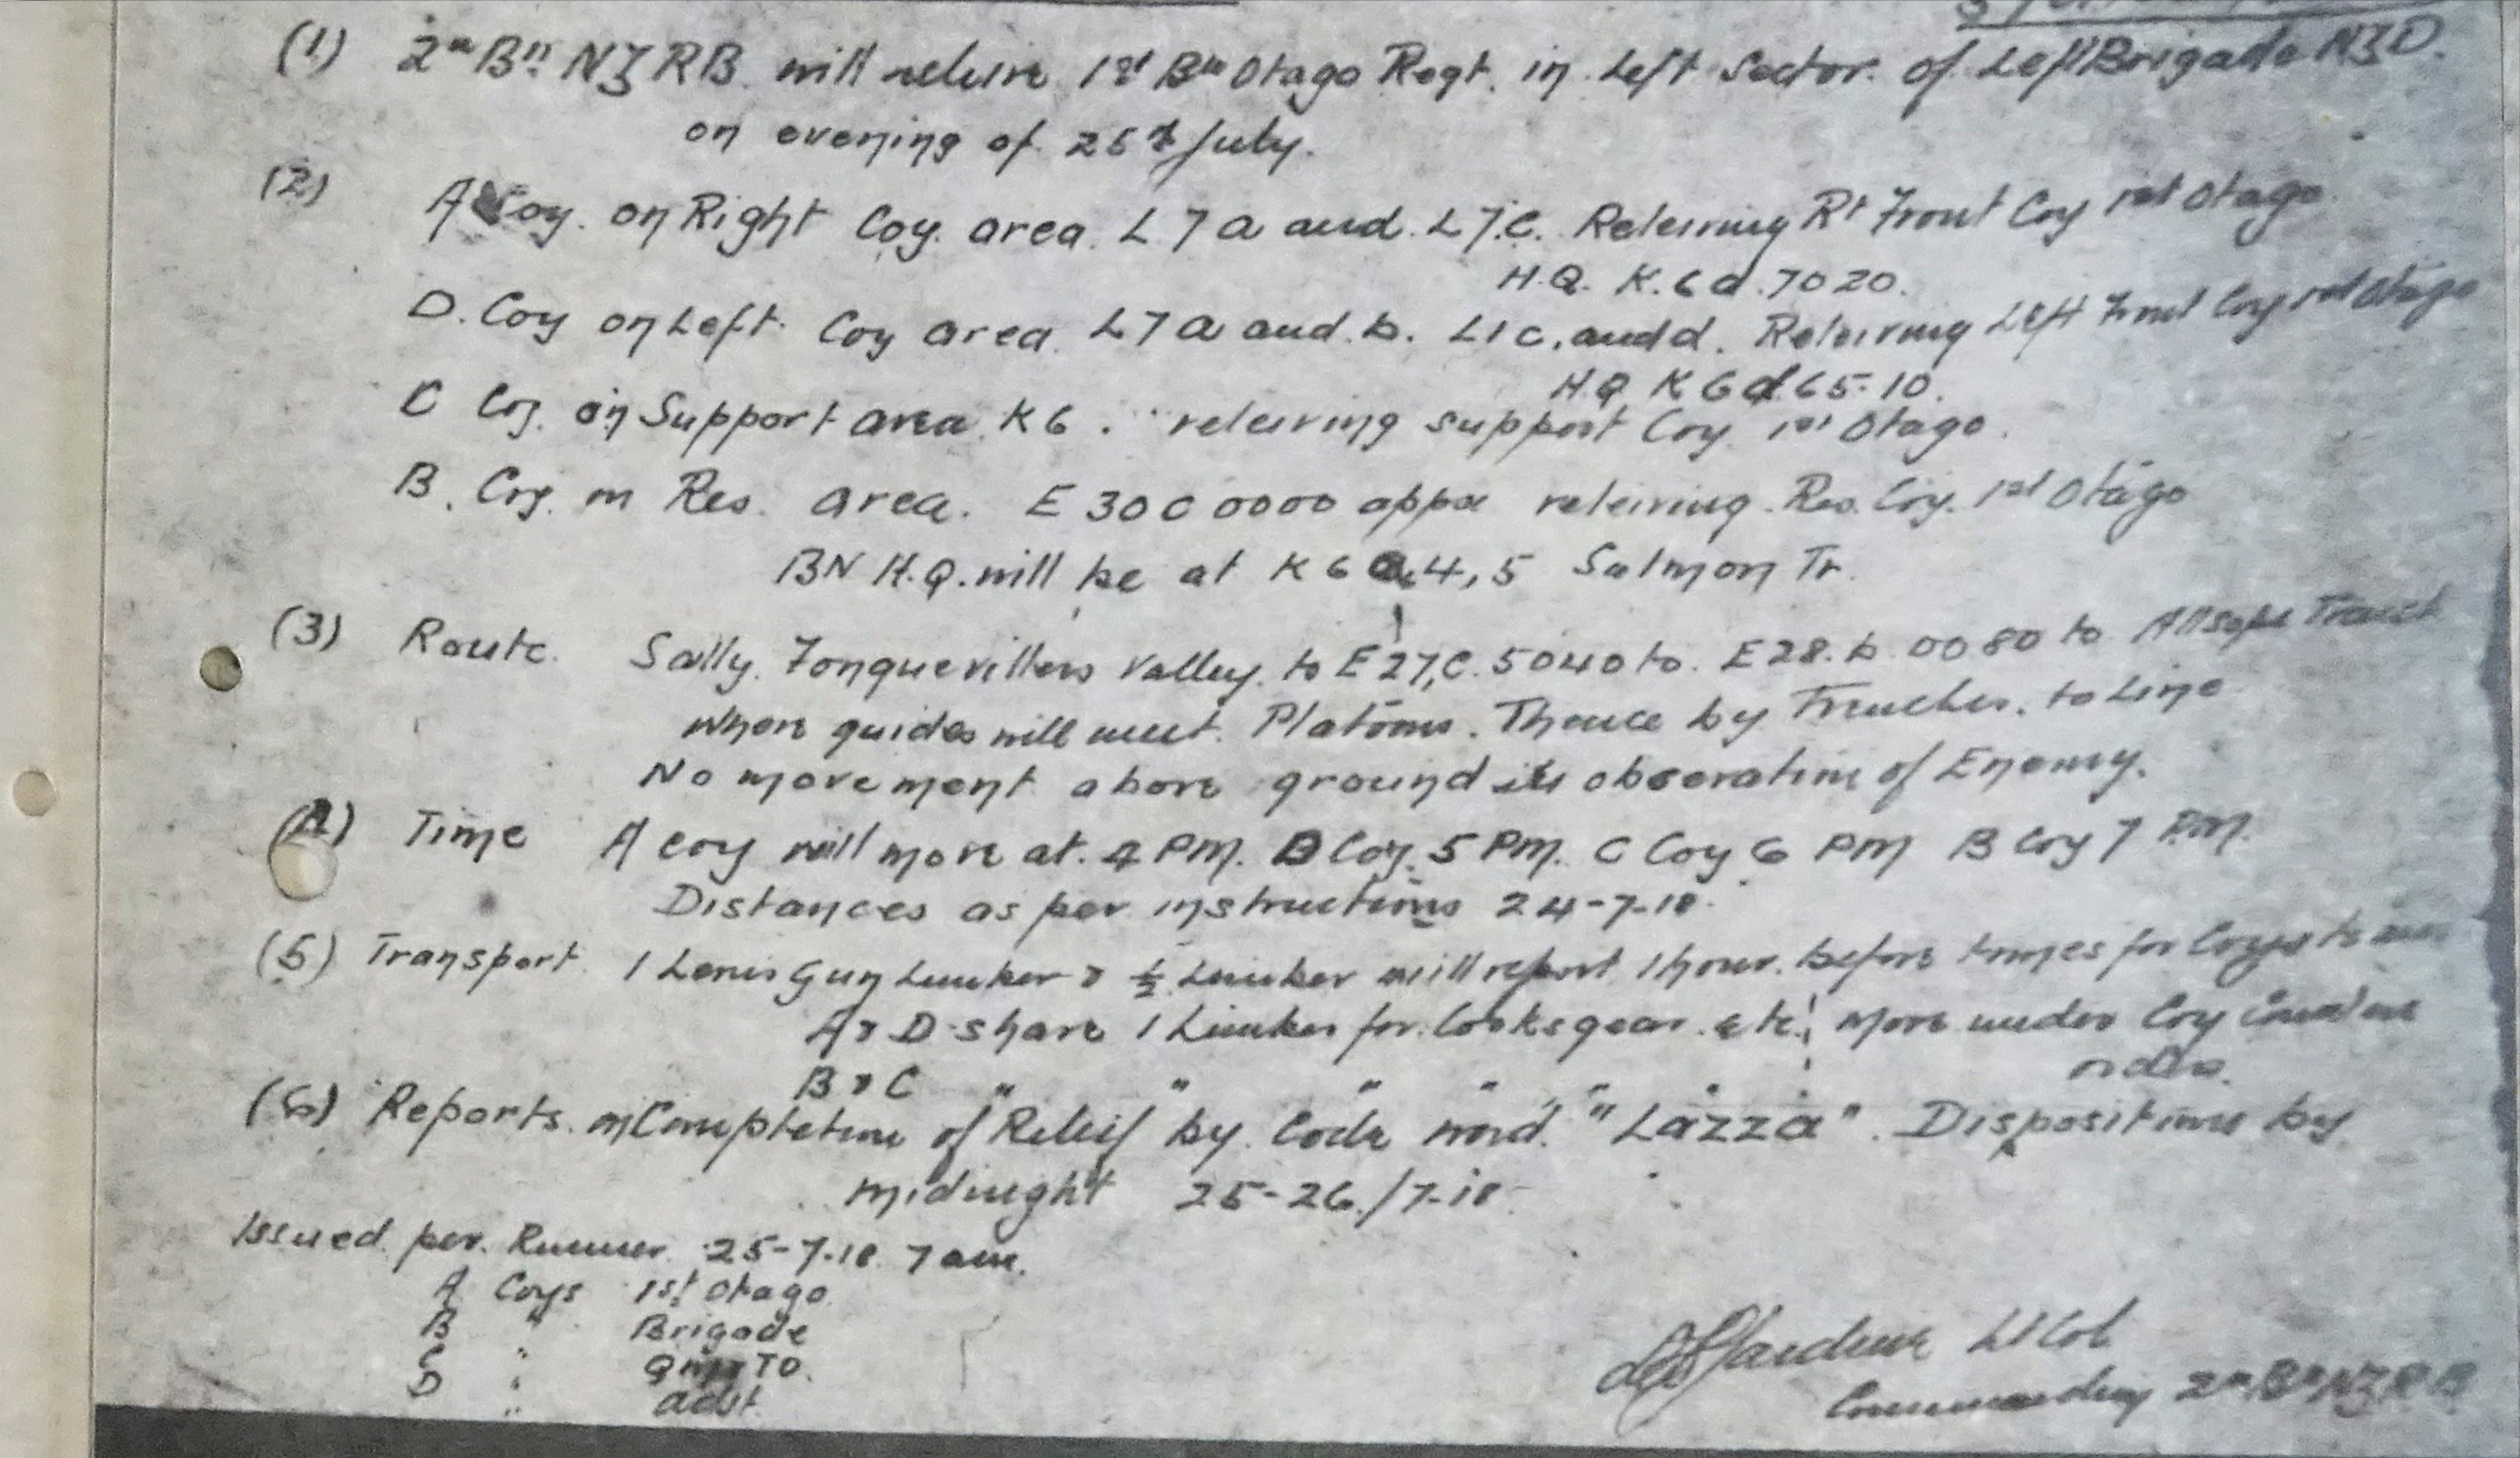 (1) 2nd Bn. NZRB. will releive 1st Bn Otago Regt. in Left Sector. of Left Brigade NZD.
on evening of 25th July.
(2) A Coy. on Right Coy. area. L7a and L7.C. Releiving Rt Front Coy 1st Otago
H.Q. K.6d.7020.
D. Coy on Left. Coy area. L7a and.b. L1c, and d. Releiving Left Front Coy 1st Otago
H.Q K6d65.10.
C Coy. in Support area K6. releiving support Coy 1st Otago.
B. Coy. in Res. area. E30C0000 appx releiving Res. Coy. 1st Otago
BN H.Q. will be at K6a,4,5 Salmon Tr.
(3) Route. Sailly. Fonquevillers Valley. to E27,C.5040 to. E28.b.0080 to Allsops Trench
Where guides will meet. Platoons. Thence by Trenches. to Line
No movement above ground in observation of Enemy.
(4) Time A Coy will move at. 4 PM. D Coy. 5 PM. C Coy 6 PM B Coy 7 P.M.
Distances as per instructions 24-7-18.
(5) Transport. 1 Lewis Gun Limber & ½ Limber will report 1 hour. before times for Coys to move
A & D share 1 Limber for Cooks gear. etc. Move under Coy
B & C " " " " " " "
orders.
(6) Reports. on Completion of Relief by. Code word. "Lazza". Dispositions by
midnight 25-26/7-18.
Issued. per. Runner. 25-7-18. 7 am.
A Coys 1st Otago
B " Brigade
C " TO.
D " Adjt.
Lt Col
Commanding 2nd Bn NZRB